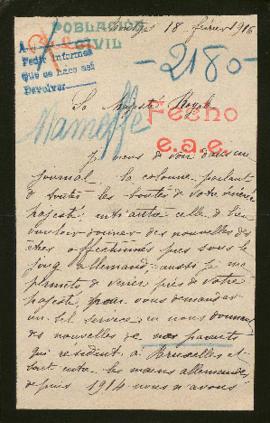 18 février 1916
POBLACION
CIVIL
Pedir informes
que se haga así
Devolver
2180
Sa Majesté Royale
Mameffe
Fecho
e.a.e.
Je viens de voir dans un
journal la colonne parlant
de toutes les bontés de votre
majesté, entr'autre celle de bien
vouloir donner des nouvelles des
êtres affectionnés pris sous le
joug allemand; aussi je me
permets de venir près de votre
majesté, pour vous demander
un tel service, en nous donnant
des nouvelles de nos parents
qui résident à Bruxelles et
sont entre les mains allemandes
depuis 1914 nous n'avons